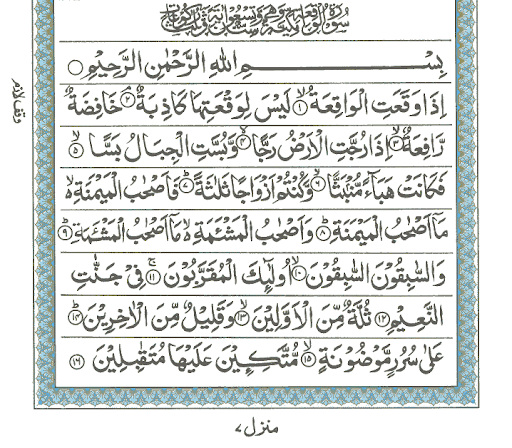 سُوْرَةُ الْوَاقِعَةِ مَكِّيَّةٌ وَّهِيَ سِتٌّ وَّتِسْعُوْنَ اٰيَةً وَّثَلٰثُ رُكُوْعَاتٍ
بِسْمِ اللهِ الرَّحْمٰنِ الرَّحِيْمِ
اِذَا وَقَعَتِ الْوَاقِعَةُ ۙ۱ لَيْسَ لِوَقْعَتِهَا كَاذِبَةٌ ۘ۲ خَافِضَةٌ
وقف لازم
رَّافِعَةٌ ۙ۳ اِذَا رُجَّتِ الْاَرْضُ رَجًّا ۙ۴ وَّبُسَّتِ الْجِبَالُ بَسًّا ۙ۵
فَكَانَتْ هَبَآءً مُّنْۢبَثًّا ۙ۶ وَّكُنْتُمْ اَزْوَاجًا ثَلٰثَةً ؕ۷ فَاَصْحٰبُ الْمَيْمَنَةِ ۙ۬
مَاۤ اَصْحٰبُ الْمَيْمَنَةِ ؕ۸ وَاَصْحٰبُ الْمَشْـَٔمَةِ ۙ۬ مَاۤ اَصْحٰبُ الْمَشْـَٔمَةِ ؕ۹
وَالسّٰبِقُوْنَ السّٰبِقُوْنَ ۙ۱۰ اُولٰٓئِكَ الْمُقَرَّبُوْنَ ۚ۱۱ فِيْ جَنّٰتِ
النَّعِيْمِ ۱۲ ثُلَّةٌ مِّنَ الْاَوَّلِيْنَ ۙ۱۳ وَقَلِيْلٌ مِّنَ الْاٰخِرِيْنَ ؕ۱۴
عَلٰى سُرُرٍ مَّوْضُوْنَةٍ ۙ۱۵ مُّتَّكِـِٕيْنَ عَلَيْهَا مُتَقٰبِلِيْنَ ۱۶
منزل ۷